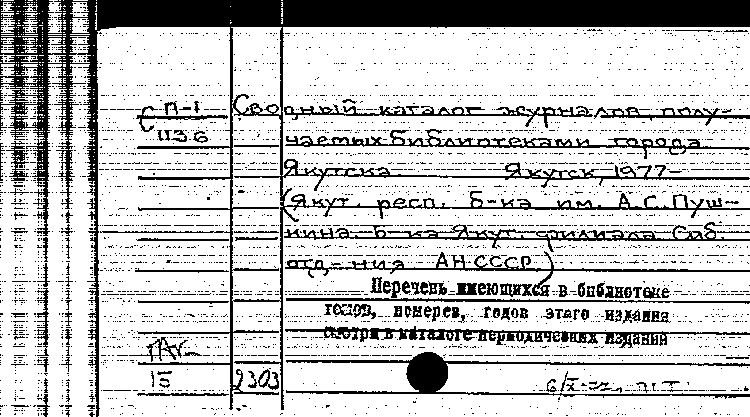 П-1 Сводный каталог журналов, полу-
С 1136 чаемых библиотеками города
Якутска Якутск, 1977-
(Якут. респ. б-ка им. А.С. Пуш-
кина. Б-ка Якут. филиала Сиб.
отд-ния АН СССР.)
Перечень имеющихся в библиотеке
годов, номеров, годов этого издания
смотри в каталоге периодических изданий
15 2303